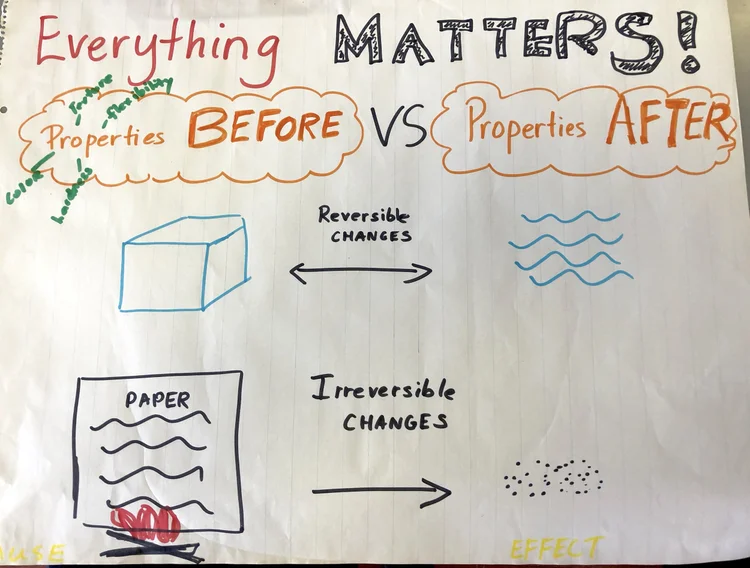 Everything MATTERS!
Texture
flexibility
Properties BEFORE VS Properties AFTER
Color
Hardness
Reversible
CHANGES
PAPER
Irreversible
CHANGES
AUSE EFFECT